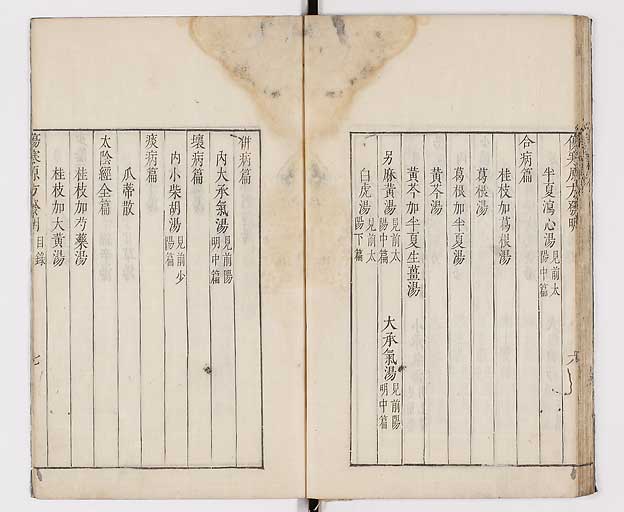 半夏瀉心湯見前太陽中篇
合病篇
桂枝加葛根湯
葛根湯
葛根加半夏湯
黃芩湯
黃芩加半夏生薑湯
另麻黃湯見前太陽中篇 大承氣湯見前陽明中篇
白虎湯見前太陽下篇
併病篇
內大承氣湯見前陽明中篇
壞病篇
內小柴胡湯見前少陽篇
痰病篇
瓜蒂散
太陰經全篇
桂枝加芍藥湯
桂枝加大黃湯
傷寒原方發明目錄 七